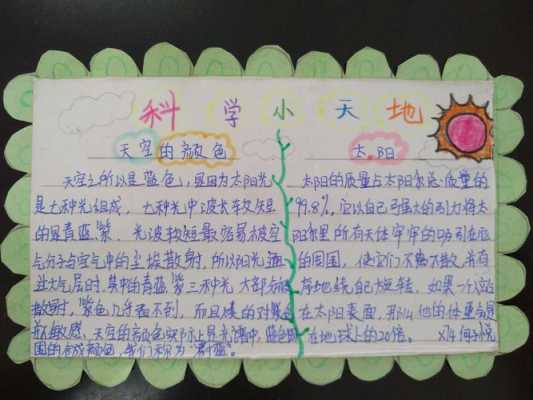 科学小天地
天空的颜色
天空之所以是蓝色,是因为太阳光
是七种光组成,七种光中波长较短
的是青蓝紫,光波较短最容易被空
气分子与空气中的尘埃散射,所以阳光通
过大气层时,其中的青蓝紫三种光大部分被
散射,紫色几乎看不到,而且人的对紫色
不敏感,天空的颜色实际上是光谱中蓝色
围的合成颜色,我们称为"蔚蓝"。
太阳
太阳的质量占太阳系总质量的
99.8%,它以自己强大的引力将太
阳系里所有天体牢牢的吸引在它
的周围,使它们不离不散,井有
序地绕自己旋转,如果一个人站
在太阳表面,那么他的体重会是
在地球上的20倍。